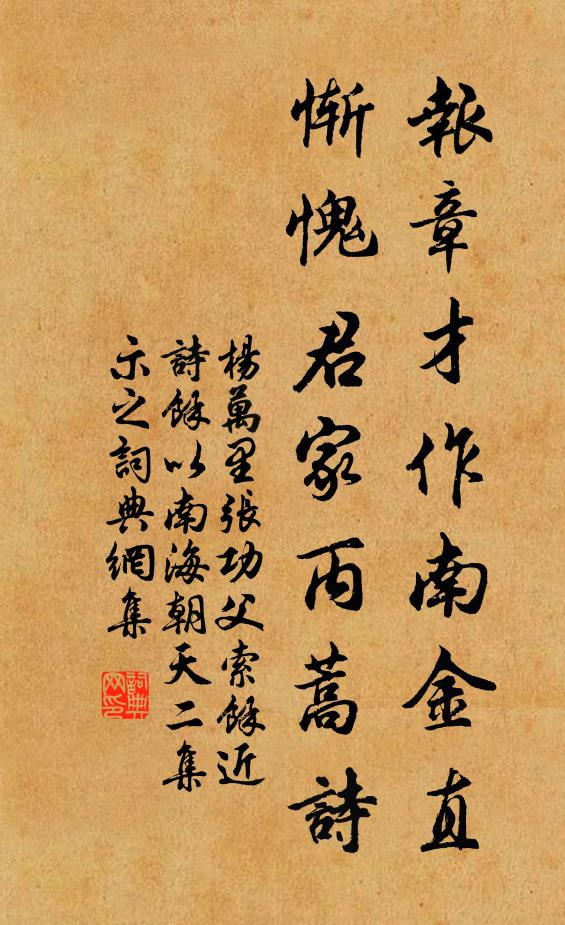 報章才作南金直
慚愧君家丙蒿詩
楊萬里張功父索餘近
詩餘以南海朝天二集
示之詞典網集
詞典网印